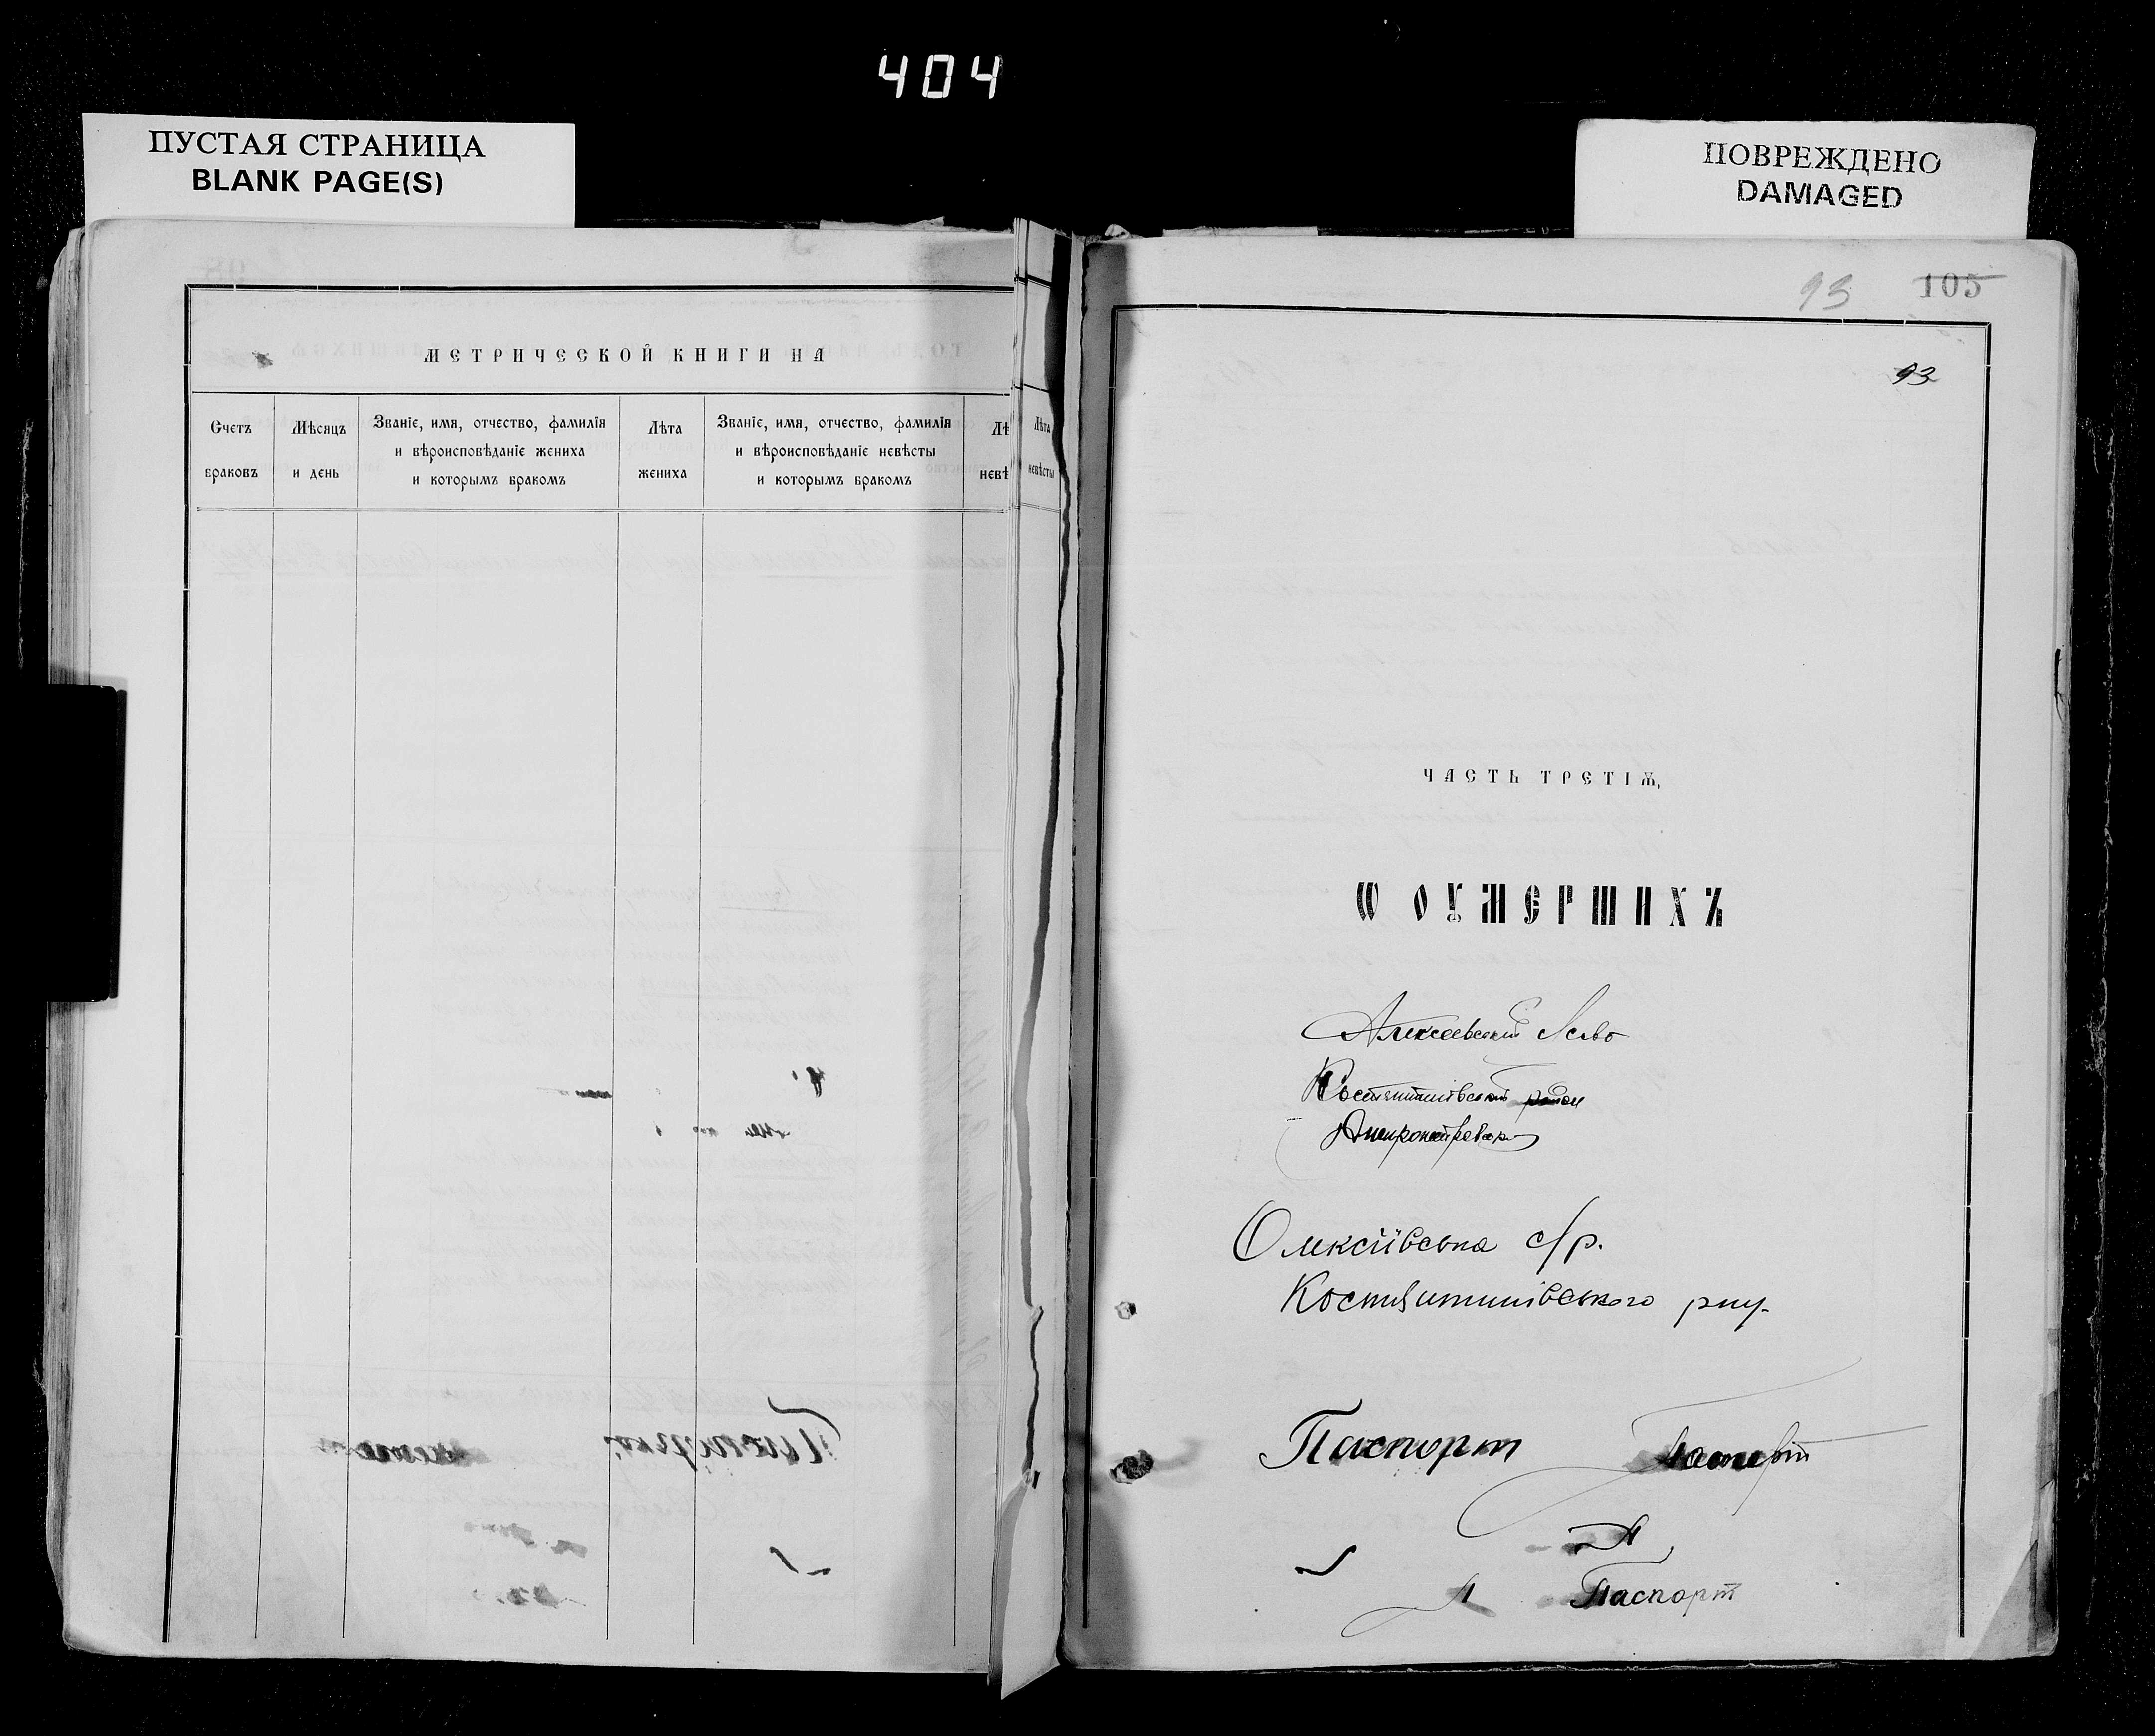 404
ПУСТАЯ СТРАНИЦА
BLANK PAGE(S)
ПОВРЕЖДЕНО
DAMAGED
МЕТРИЧЕСКОЙ КНИГИ НА
Счетъ
браковъ
Мѣсяцъ
и день
Званіе, имя, отчество, фамилія
и вѣроисповѣданіе жениха
и которымъ бракомъ
Лѣта
жениха
Званіе, имя, отчество, фамилія
и вѣроисповѣданіе невѣсты
и которымъ бракомъ
Лѣ
невѣ
Лѣта
невѣсты
93 105
93
ЧАСТЬ ТРЕТІѦ,
Ѡ ОУМЕРШИХЪ
Олексіївська с/р.
Костянтинівського р-ну.
Паспорт
Паспорт